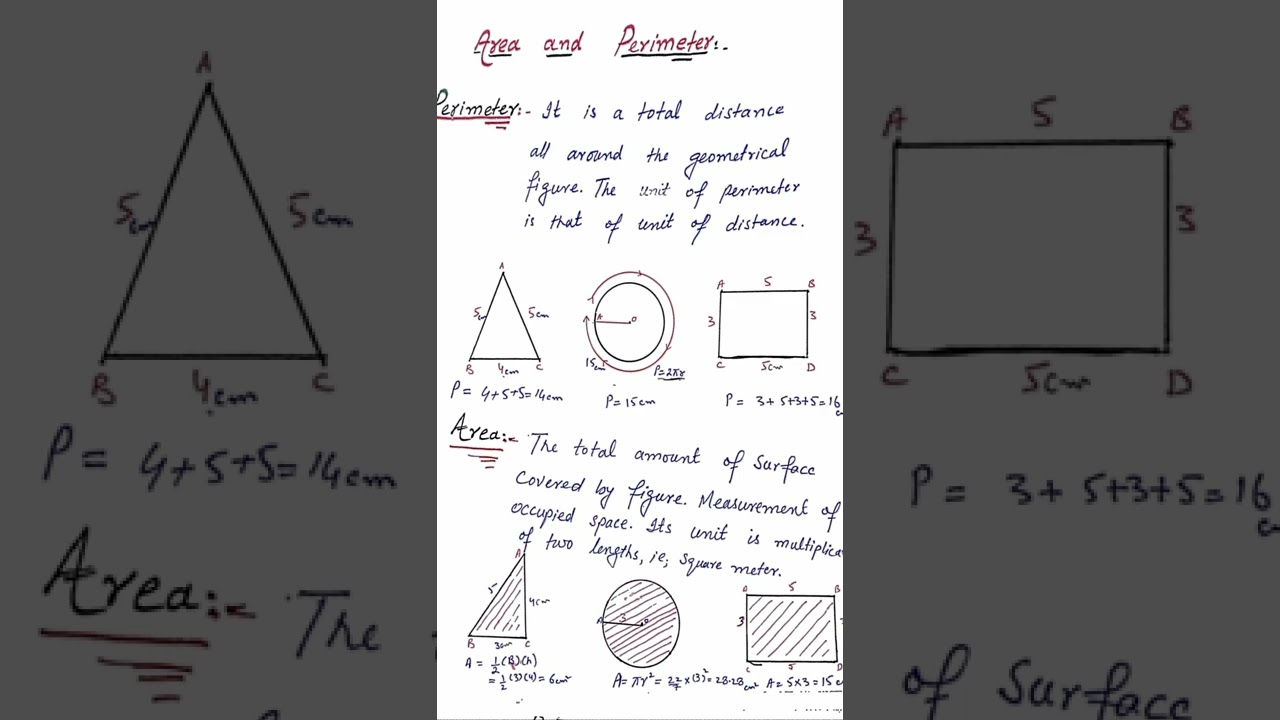 Area and Perimeter:-
Perimeter:- It is a total distance
all around the geometrical
figure. The unit of perimeter
is that of unit of distance.
A
5cm 5cm
B 4cm C
P = 4+5+5=14cm
A O
15cm P=2πr
P=15cm
A 5 B
3 3
C 5cm D
P = 3+ 5+3+5=16
cm
Area:- The total amount of surface
Covered by figure. Measurement of
occupied space. Its unit is multiplica
of two lengths, ie; square meter.
A
5 4cm
B 3cm C
A = 1/2 (B)(h)
= 1/2 (3)(4) = 6cm²
A 3 O
A = πr² = 22/7 × (3)² = 28.28 cm²
A 5 B
3 3
C 5 D
A = 5×3 = 15 c
A
5cm 5cm
B 4cm C
P = 4+5+5=14cm
Area:- The
A 5 B
3 3
C 5cm D
P = 3+ 5+3+5=16
of surface